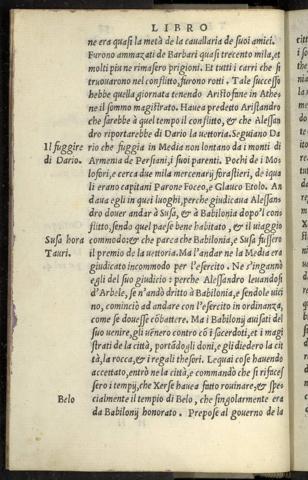 LIBRO
ne era quasi la metà de la cauallaria de suoi amici.
Furono ammazati de Barbari quasi trecento mila, et
molti piu ne rimasero prigioni. Et tutti i carri che si
truouarono nel conflitto, furono rotti. Tale successo
hebbe quella giornata tenendo Aristofane in Athe-
ne il sommo magistrato. Hauea predetto Aristandro
che sarebbe à quel tempo il conflitto, & che Alessan
dro riportarebbe di Dario la uettoria. Seguiano Da
Il fuggire
di Dario.
rio che fuggia in Media non lontano da i monti di
Armenia de Persiani, i suoi parenti. Pochi de i Mo-
lofori, e cerca due mila mercenarij forastieri, de i qua
li erano capitani Parone Foceo, e Glauco Etolo. An
daua egli in quei luoghi, perche giudicaua Alessan-
dro douer andar à Susa, & à Babilonia dopo'l con-
flitto, sendo quel paese bene habitato, & il uiaggio
Susa hora
Tauri.
commodo: & che parea che Babilonia, e Susa fussero
il premio de la uettoria. Ma l'andar ne la Media era
giudicato incommodo per l'esercito. Ne s'ingannò
egli del suo giudicio: perche Alessandro leuandosi
d'Arbele, se n'andò dritto à Babilonia, e sendole uici
no, cominciò ad andare con l'esercito in ordinanza,
come se douesse cōbattere. Ma i Babilonij auisati del
suo uenire, gli uēnero contro cō i sacerdoti, et i magi
strati de la città, portādogli doni, e gli diedero la cit
tà, la rocca, & i regali thesori. Le quai cose hauendo
accettato, entrò ne la città, e commandò che si rifaces
sero i tempij, che Xerse hauea fatto rouinare, & spe-
Belo
cialmente il tempio di Belo, che singolarmente era
da Babilonij honorato. Prepose al gouerno de la